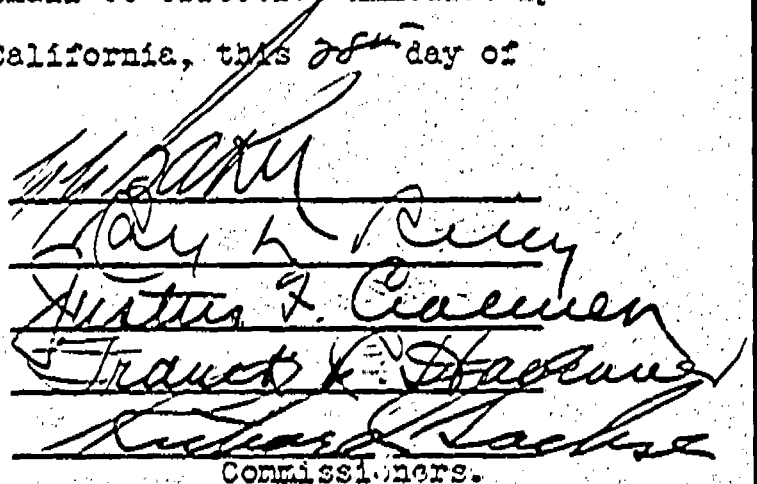 California, this 28th day of
Ray L. Riley
Justus F. Craemer
Franck R. Havenner
Richard Sachse
Commissioners.